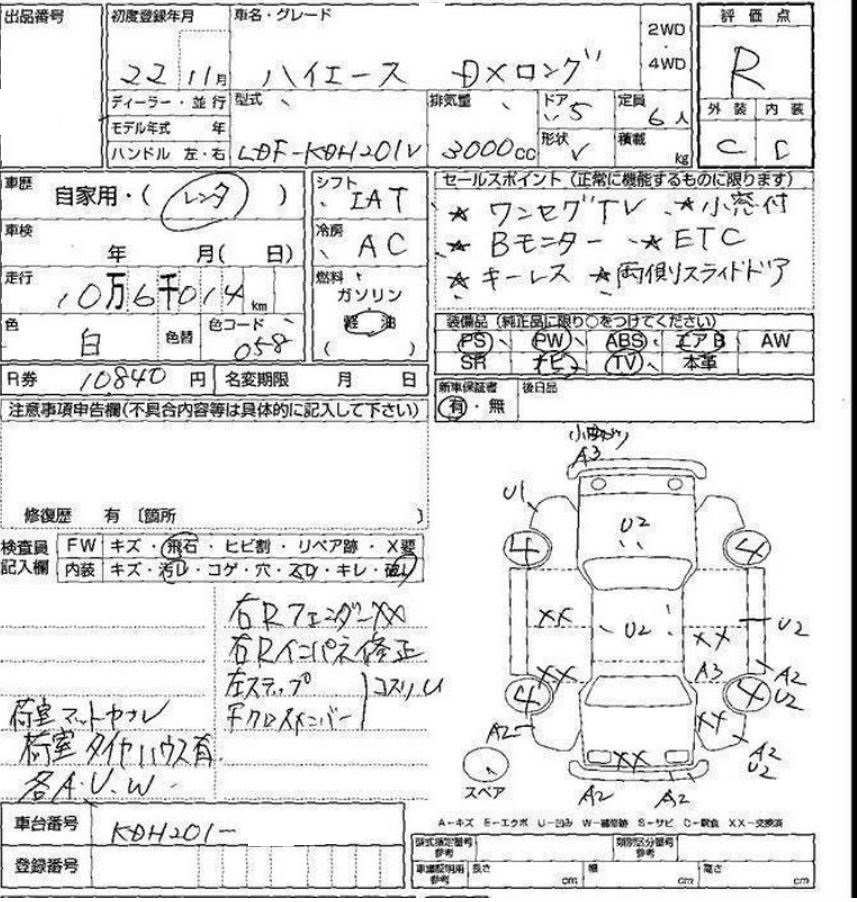 出品番号
初度登録年月
車名・グレード
2WD
・
4WD
評価点
22 11月
ハイエース DXロング
R
ディーラー・並行
型式
排気量
ドア 5
定員 6人
外装 内装
モデル年式 年
C C
ハンドル 左・右
LDF-KDH201V
3000cc
形状 V
積載 kg
車歴 自家用・( レンタ )
シフト IAT
セールスポイント(正常に機能するものに限ります)
★ ワンセグTV ★小窓付
車検 年 月( 日)
冷房 AC
★ Bモニター ★ETC
走行 10万6千014km
燃料 ガソリン
★ キーレス ★両側スライドドア
軽油
( )
色 白 色替 色コード 058
装備品(純正品に限り○をつけてください)
PS PW ABS エアB AW
SR ナビ TV 本革
R券 10840円 名変期限 月 日
新車保証書 後日品
有・無
注意事項申告欄(不具合内容等は具体的に記入して下さい)
修復歴 有〔箇所 〕
検査員
記入欄
FW キズ・飛石・ヒビ割・リペア跡・X要
内装 キズ・汚れ・コゲ・穴・スレ・キレ・破れ
右RフェンダーXX
右Rインパネ修正
左ステップ
コスリU
荷室マット
荷室タイヤハウス有
各A.U.W
A3
U1
U2
4
4
XX
U2
XX
U2
XX
A3
A2
4
4
U2
A2
XX
XX
A2
U2
スペア
A2
A2
A-キズ E-エクボ U-凹み W-補修跡 S-サビ C-腐食 XX-交換済
車台番号 KDH201-
登録番号
型式指定番号
参考
類別区分番号
参考
車庫証明用
参考
長さ cm
幅 cm
高さ cm